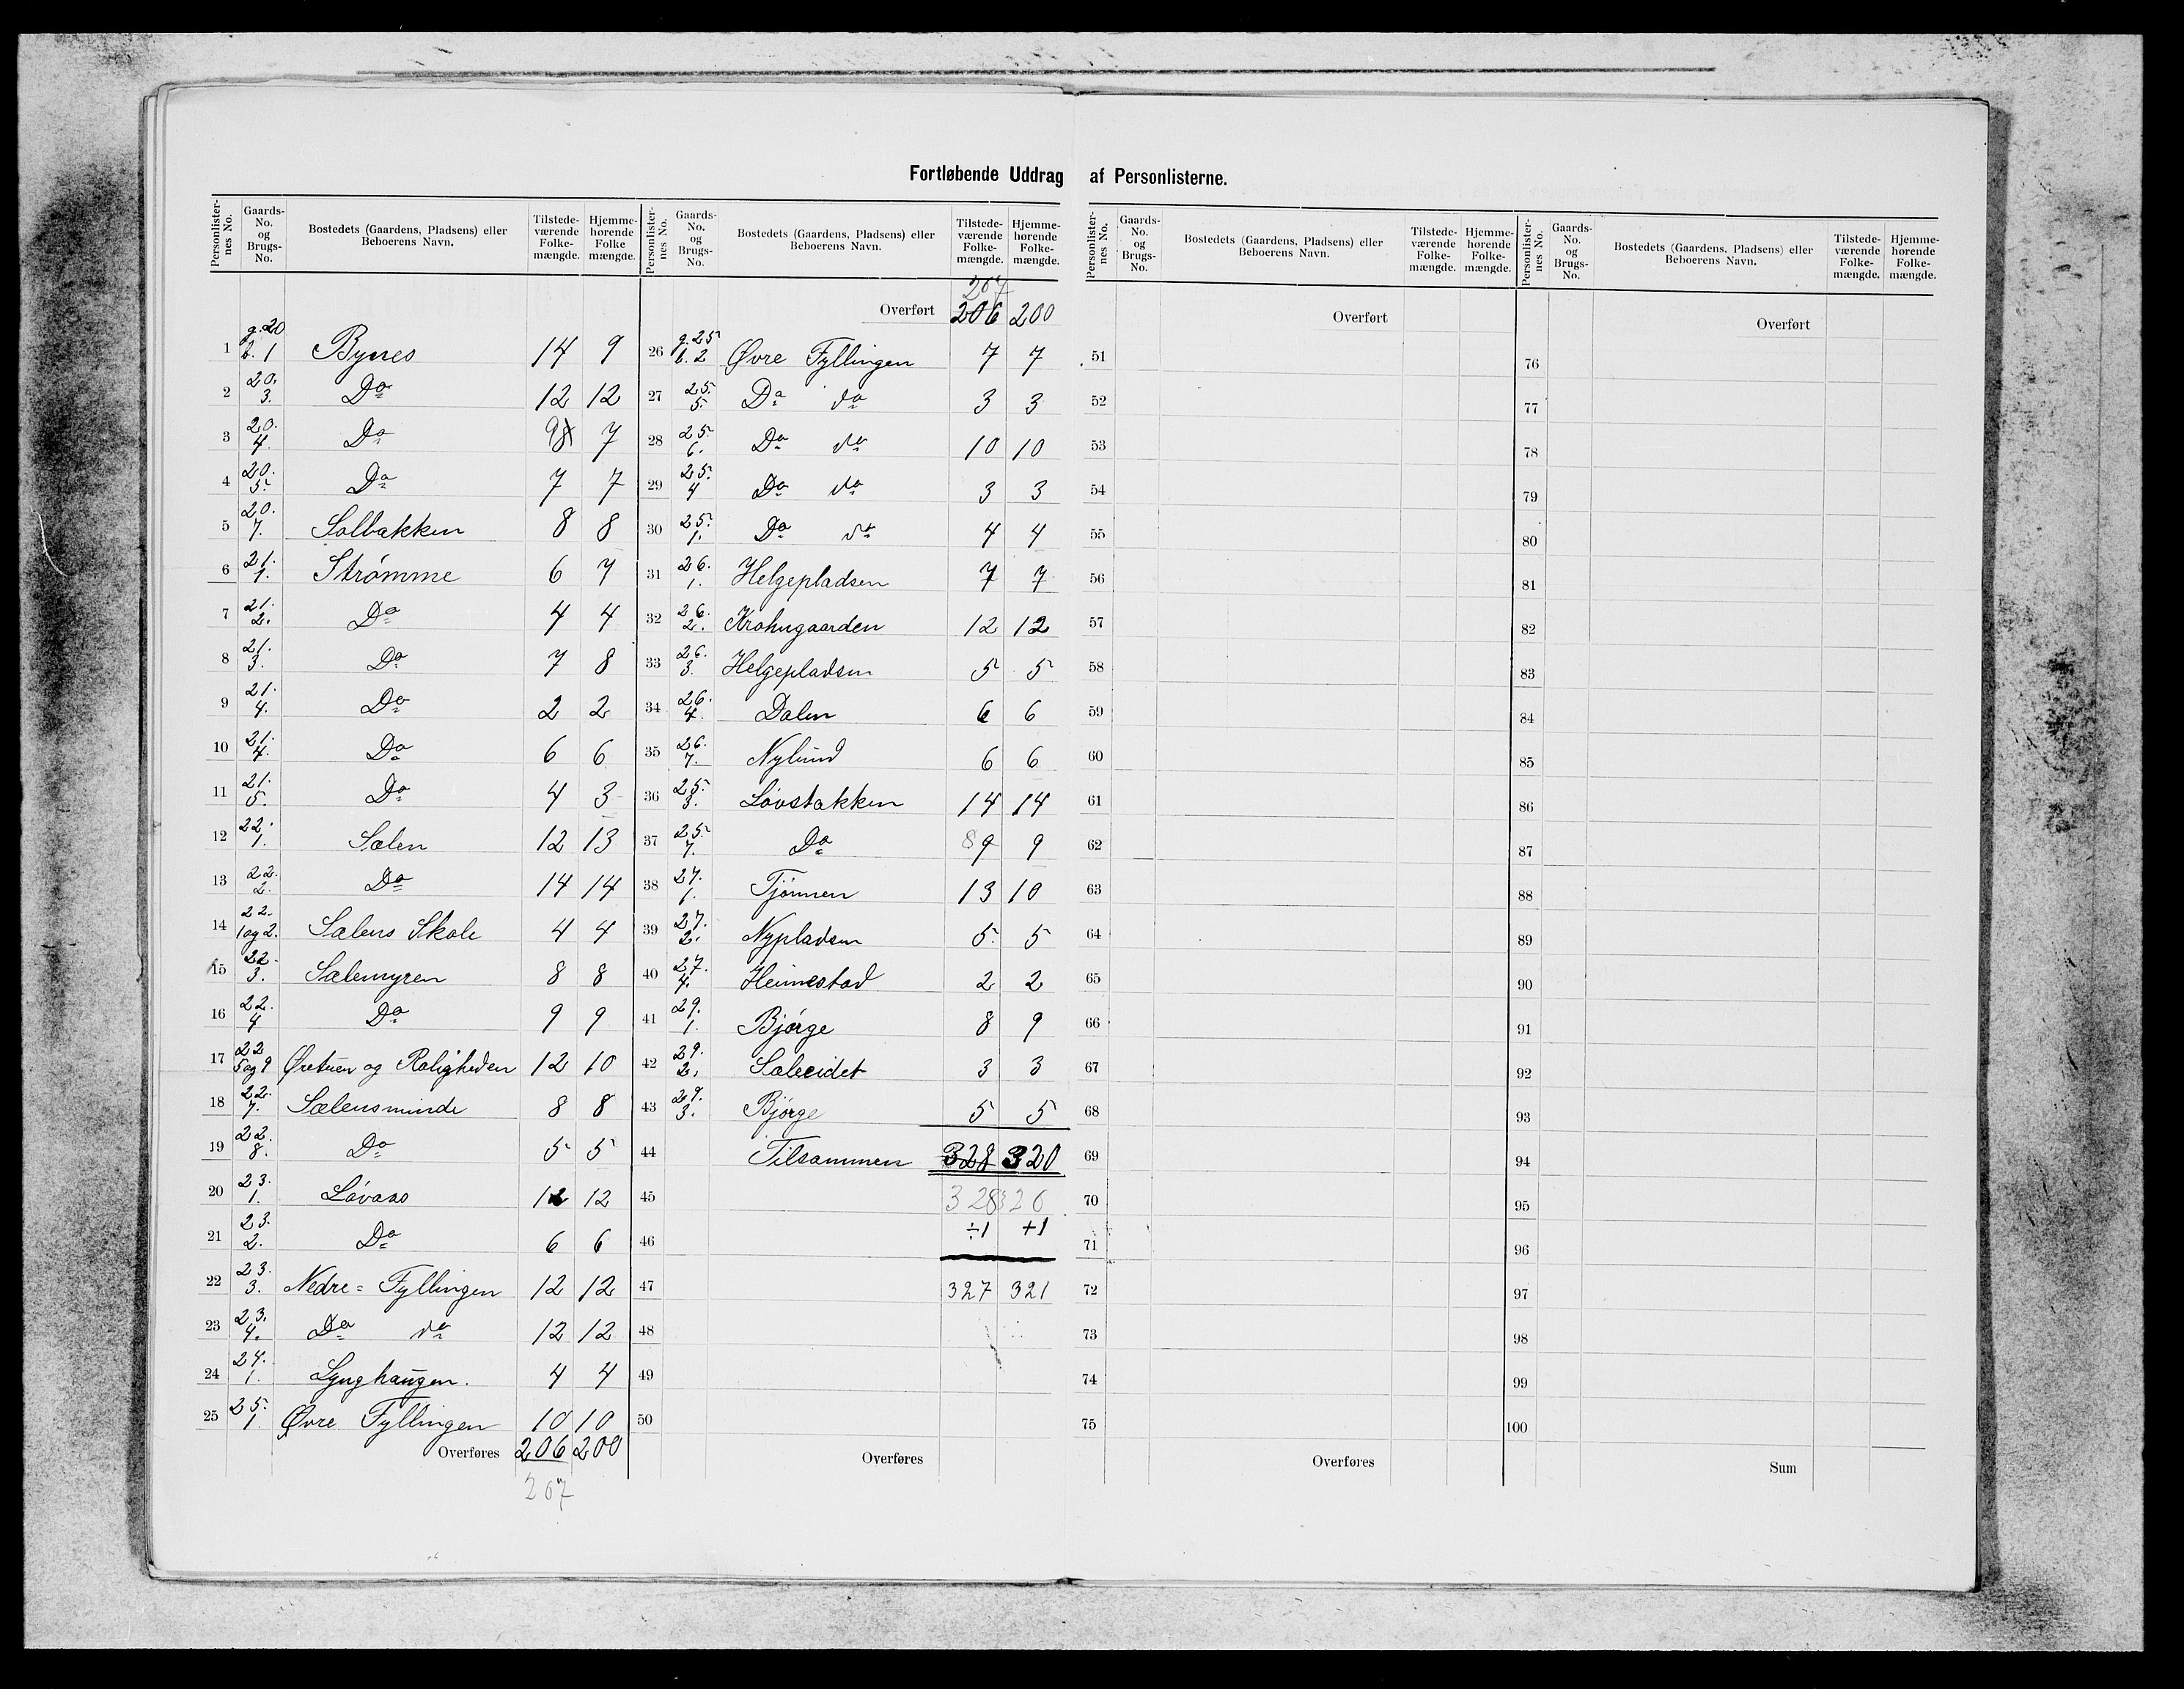 Fortløbende Uddrag af Personlisterne.
Personlister-nes No. | Gaards-No. og Brugs-No. | Bostedets (Gaardens, Pladsens) eller Beboerens Navn. | Tilstede-værende Folke-mængde. | Hjemme-hørende Folke mængde.
1 | g. 20 b. 1 | Bynes | 14 | 9
2 | 20. 3. | Do | 12 | 12
3 | 20. 4. | Do | 98 | 7
4 | 20. 5. | Do | 7 | 7
5 | 20. 7. | Solbakken | 8 | 8
6 | 21. 1. | Strømme | 6 | 7
7 | 21. 2. | Do | 4 | 4
8 | 21. 3. | Do | 7 | 8
9 | 21. 4. | Do | 2 | 2
10 | 21. 4. | Do | 6 | 6
11 | 21. 5. | Do | 4 | 3
12 | 22. 1. | Sælen | 12 | 13
13 | 22. 2. | Do | 14 | 14
14 | 22. 1 og 2. | Sælens Skole | 4 | 4
15 | 22. 3. | Sælemyren | 8 | 8
16 | 22. 4 | Do | 9 | 9
17 | 22 5 og 9 | Øretuen og Roligheden | 12 | 10
18 | 22. 7. | Sælensminde | 8 | 8
19 | 22. 8. | Do | 5 | 5
20 | 23. 1. | Løvaas | 12 | 12
21 | 23. 2. | Do | 6 | 6
22 | 23. 3. | Nedre = Fyllingen | 12 | 12
23 | 23. 4. | Do do | 12 | 12
24 | 24. 1. | Lynghaugen. | 4 | 4
25 | 25. 1. | Øvre Fyllingen | 10 | 10
Overføres | 206 | 200
207
Personlister-nes No. | Gaards-No. og Brugs-No. | Bostedets (Gaardens, Pladsens) eller Beboerens Navn. | Tilstede-værende Folke-mængde. | Hjemme-hørende Folke-mængde.
207
Overført | 206 | 200
26 | g. 25 b. 2 | Øvre Fyllingen | 7 | 7
27 | 25. 5. | Do do | 3 | 3
28 | 25. 6. | Do do | 10 | 10
29 | 25. 4 | Do do | 3 | 3
30 | 25. 1. | Do do | 4 | 4
31 | 26. 1. | Helgepladsen | 7 | 7
32 | 26. 2. | Krohngaarden | 12 | 12
33 | 26. 3. | Helgepladsen | 5 | 5
34 | 26. 4. | Dalen | 6 | 6
35 | 26. 7. | Nylund | 6 | 6
36 | 25. 3. | Løvstakken | 14 | 14
37 | 25. 7. | Do | 8 9 | 9
38 | 27. 1. | Tjønnen | 13 | 10
39 | 27. 2. | Nypladsen | 5 | 5
40 | 27. 4. | Heimestad | 2 | 2
41 | 29. 1. | Bjørge | 8 | 9
42 | 29. 2. | Sæleeidet | 3 | 3
43 | 29. 3. | Bjørge | 5 | 5
44 | Tilsammen | 328 | 320
45 | 328 | 320
46 | ÷1 | +1
47 | 327 | 321
48
49
50
Overføres
Personlister-nes No. | Gaards-No. og Brugs-No. | Bostedets (Gaardens, Pladsens) eller Beboerens Navn. | Tilstede-værende Folke-mængde. | Hjemme-hørende Folke-mængde.
Overført
51
52
53
54
55
56
57
58
59
60
61
62
63
64
65
66
67
68
69
70
71
72
73
74
75
Overføres
Personlister-nes No. | Gaards-No. og Brugs-No. | Bostedets (Gaardens, Pladsens) eller Beboerens Navn. | Tilstede-værende Folke-mængde. | Hjemme-hørende Folke-mængde.
Overført
76
77
78
79
80
81
82
83
84
85
86
87
88
89
90
91
92
93
94
95
96
97
98
99
100
Sum